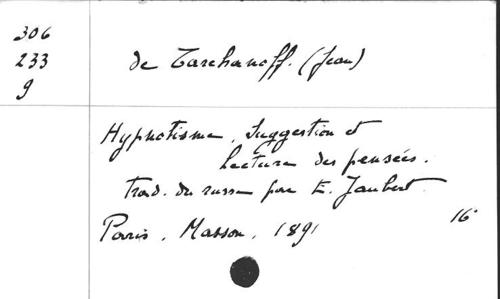 306
233
9
de Tarchanoff. (Jean)
Hypnotisme, Suggestion et
Lecture des pensées.
Trad. du russe par E. Jaubert.
Paris, Masson, 1891
16°